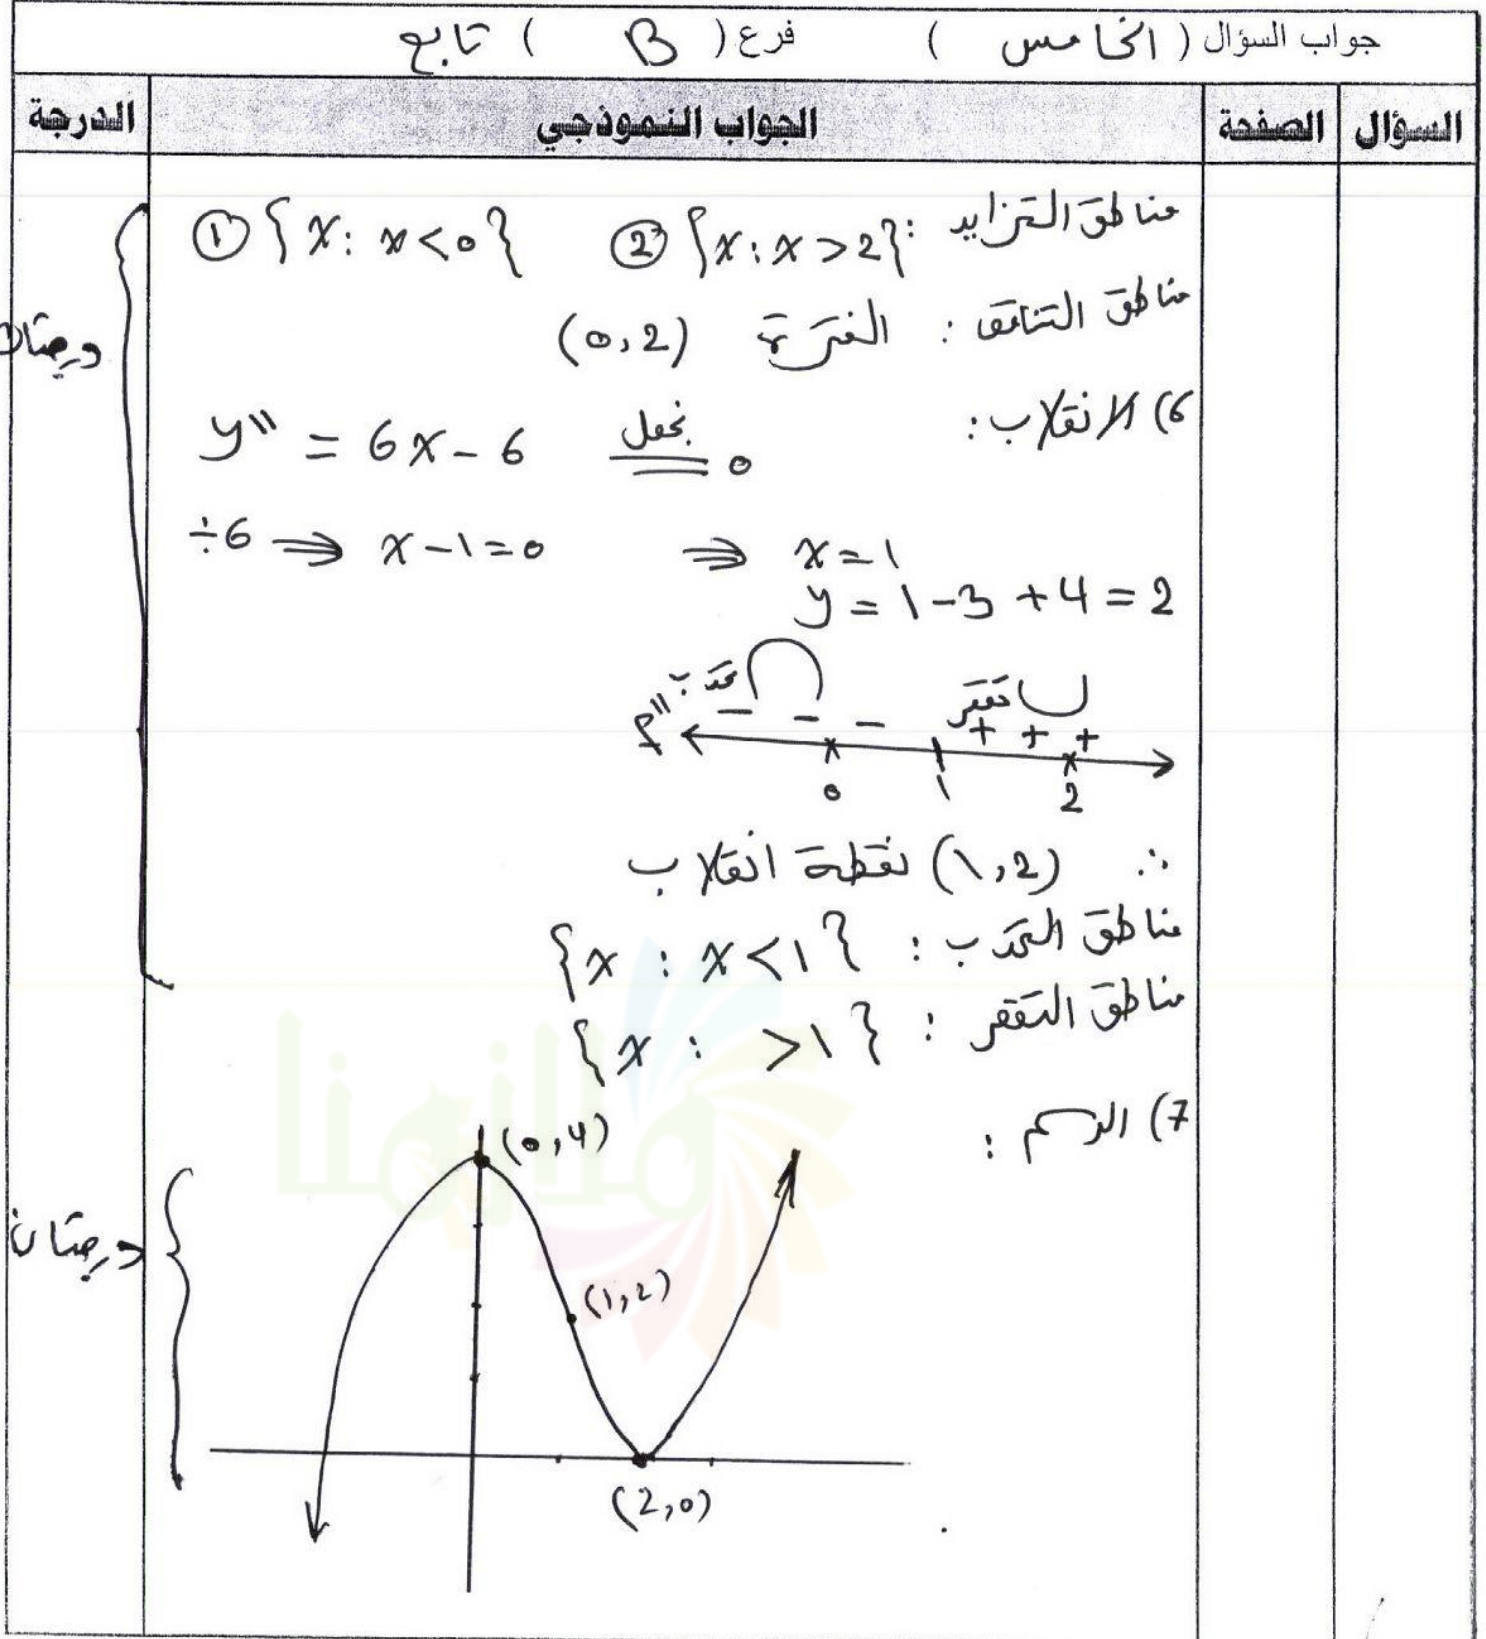 جواب السؤال ( الخامس ) فرع ( B ) تابع
السؤال الصفحة الجواب النموذجي الدرجة
مناطق التزايد : {x : x > 2} ② {x : x < 0} ①
مناطق التناقص : الفترة (0,2)
درجتان
6) الانقلاب :
y'' = 6x - 6 نجعل = 0
÷6 ⇒ x - 1 = 0 ⇒ x = 1
y = 1 - 3 + 4 = 2
تحدب تقعر
f'' - - - + + +
0 1 2
∴ (1,2) نقطة انقلاب
مناطق التحدب : {x : x < 1}
مناطق التقعر : {x : > 1}
7) الرسم :
(0,4)
درجتان
(1,2)
(2,0)
ملازمنا